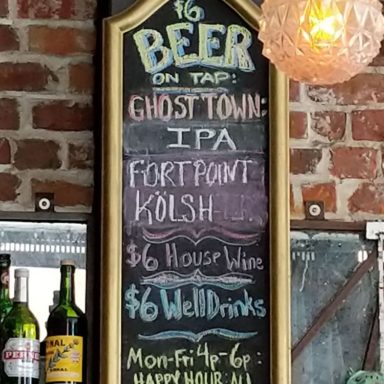 $6
BEER
ON TAP:
GHOST TOWN:
IPA
FORT POINT
KÖLSH
$6 House Wine
$6 Well Drinks
Mon-Fri 4p-6p:
HAPPY HOUR: ALL
PERNO